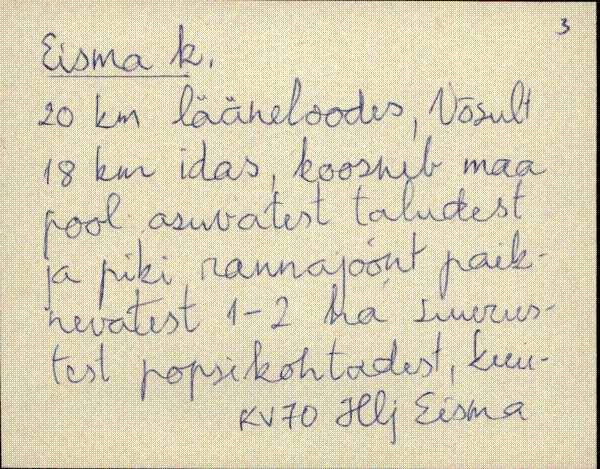 3
Eisma k.
20 km lääneloodes, Võsult
18 km idas, koosneb maa
pool asuvatest taludest
ja piki rannajoont paik-
nevatest 1-2 ha suurus-
test popsikohtadest, kuu-
KV70 Hlj Eisma